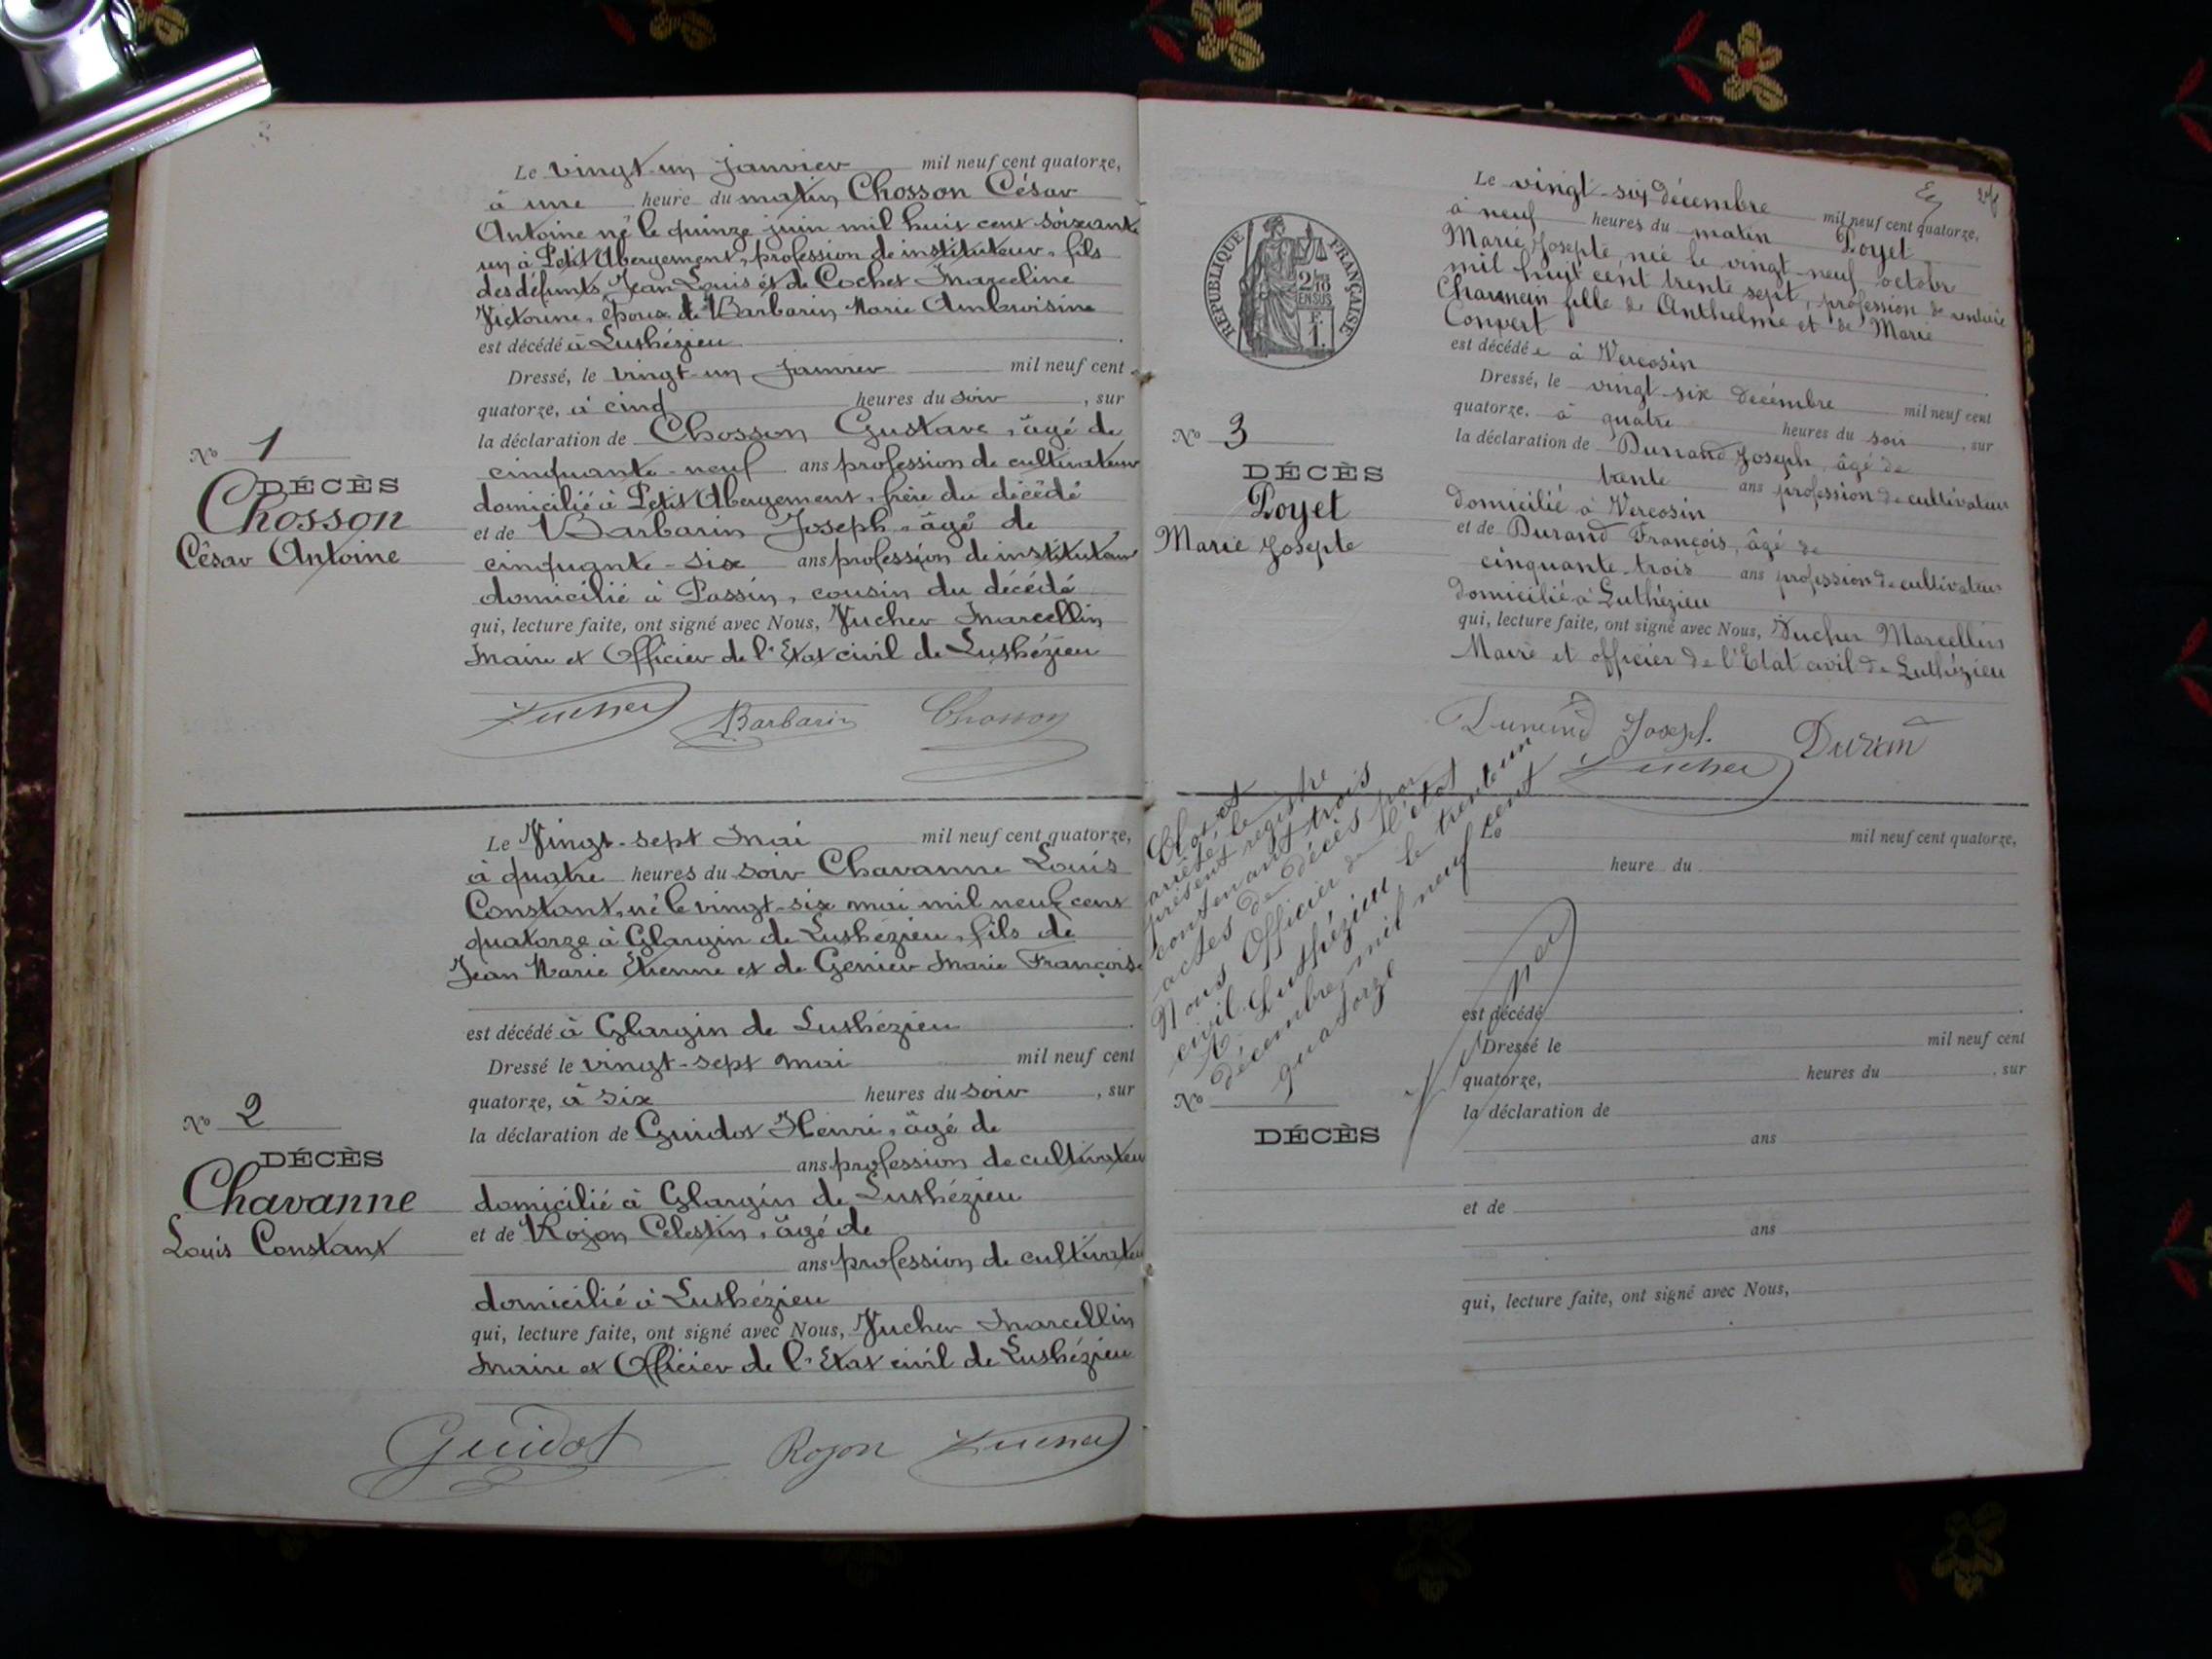 Le vingt-un janvier mil neuf cent quatorze,
à une heure du matin Chosson César
Antoine né le quinze juin mil huit cent soixante
un à Petit Abergement, profession de instituteur, fils
des défunts Jean Louis et de Cochet Marceline
Victorine, époux de Barbarin Marie Ambroisine
est décédé à Luthézieu
Dressé, le vingt-un janvier mil neuf cent
quatorze, à cinq heures du soir, sur
la déclaration de Chosson Gustave, âgé de
cinquante-neuf ans profession de cultivateur
domicilié à Petit Abergement, frère du décédé
et de Barbarin Joseph, âgé de
cinquante-six ans profession de instituteur
domicilié à Passin, cousin du décédé
qui, lecture faite, ont signé avec Nous, Jucher Marcellin
Maire et Officier de l'Etat civil de Luthézieu
No 1
DÉCÈS
Chosson
César Antoine
Jucher Barbarin Chosson
Le Vingt-sept Mai mil neuf cent quatorze,
à quatre heures du soir Chavanne Louis
Constant, né le vingt-six mai mil neuf cent
quatorze à Glargin de Luthézieu, fils de
Jean Marie Etienne et de Genier Marie Françoise
est décédé à Glargin de Luthézieu
Dressé le vingt-sept mai mil neuf cent
quatorze, à six heures du soir, sur
la déclaration de Guidot Henri, âgé de
ans profession de cultivateu
domicilié à Glargin de Luthézieu
et de Rojon Celestin, âgé de
ans profession de cultivateu
domicilié à Luthézieu
qui, lecture faite, ont signé avec Nous, Jucher Marcellin
Maire et Officier de l'Etat civil de Luthézieu
No 2
DÉCÈS
Chavanne
Louis Constant
Guidot Rojon Jucher
RÉPUBLIQUE FRANÇAISE
2/10
EN SUS
F.
1.
Le vingt-six décembre mil neuf cent quatorze,
à neuf heures du matin Poyet
Marie Josepte, née le vingt-neuf octobre
mil huit cent trente sept, profession de rentière
Charmein fille de Anthelme et de Marie
Convert
est décédée à Vercosin
Dressé, le vingt-six décembre mil neuf cent
quatorze, à quatre heures du soir, sur
la déclaration de Durand Joseph, âgé de
trente ans profession de cultivateur
domicilié à Vercosin
et de Durand François, âgé de
cinquante-trois ans profession de cultivateur
domicilié à Luthézieu
qui, lecture faite, ont signé avec Nous, Jucher Marcellin
Maire et officier de l'Etat civil de Luthézieu
No 3
DÉCÈS
Poyet
Marie Josepte
Durand Joseph. Duran
Jucher
Clos et
arrêté le
présent registre
contenant trois
actes de décès par
Nous Officier de l'état
civil Luthézieu le trente un
décembre mil neuf cent
quatorze
Jucher
Le mil neuf cent quatorze,
heure du
est décédé
Dressé le mil neuf cent
quatorze, heures du , sur
la déclaration de
ans
et de
ans
qui, lecture faite, ont signé avec Nous,
No
DÉCÈS